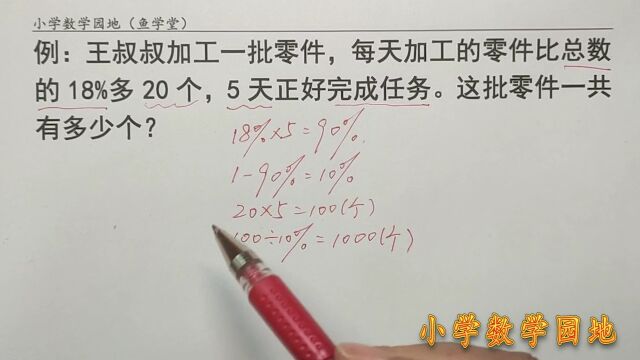 小学数学园地（鱼学堂）
例：王叔叔加工一批零件，每天加工的零件比总数
的18%多20个，5天正好完成任务。这批零件一共
有多少个？
18%×5=90%
1-90%=10%
20×5=100(个)
100÷10%=1000(个)
小学数学园地